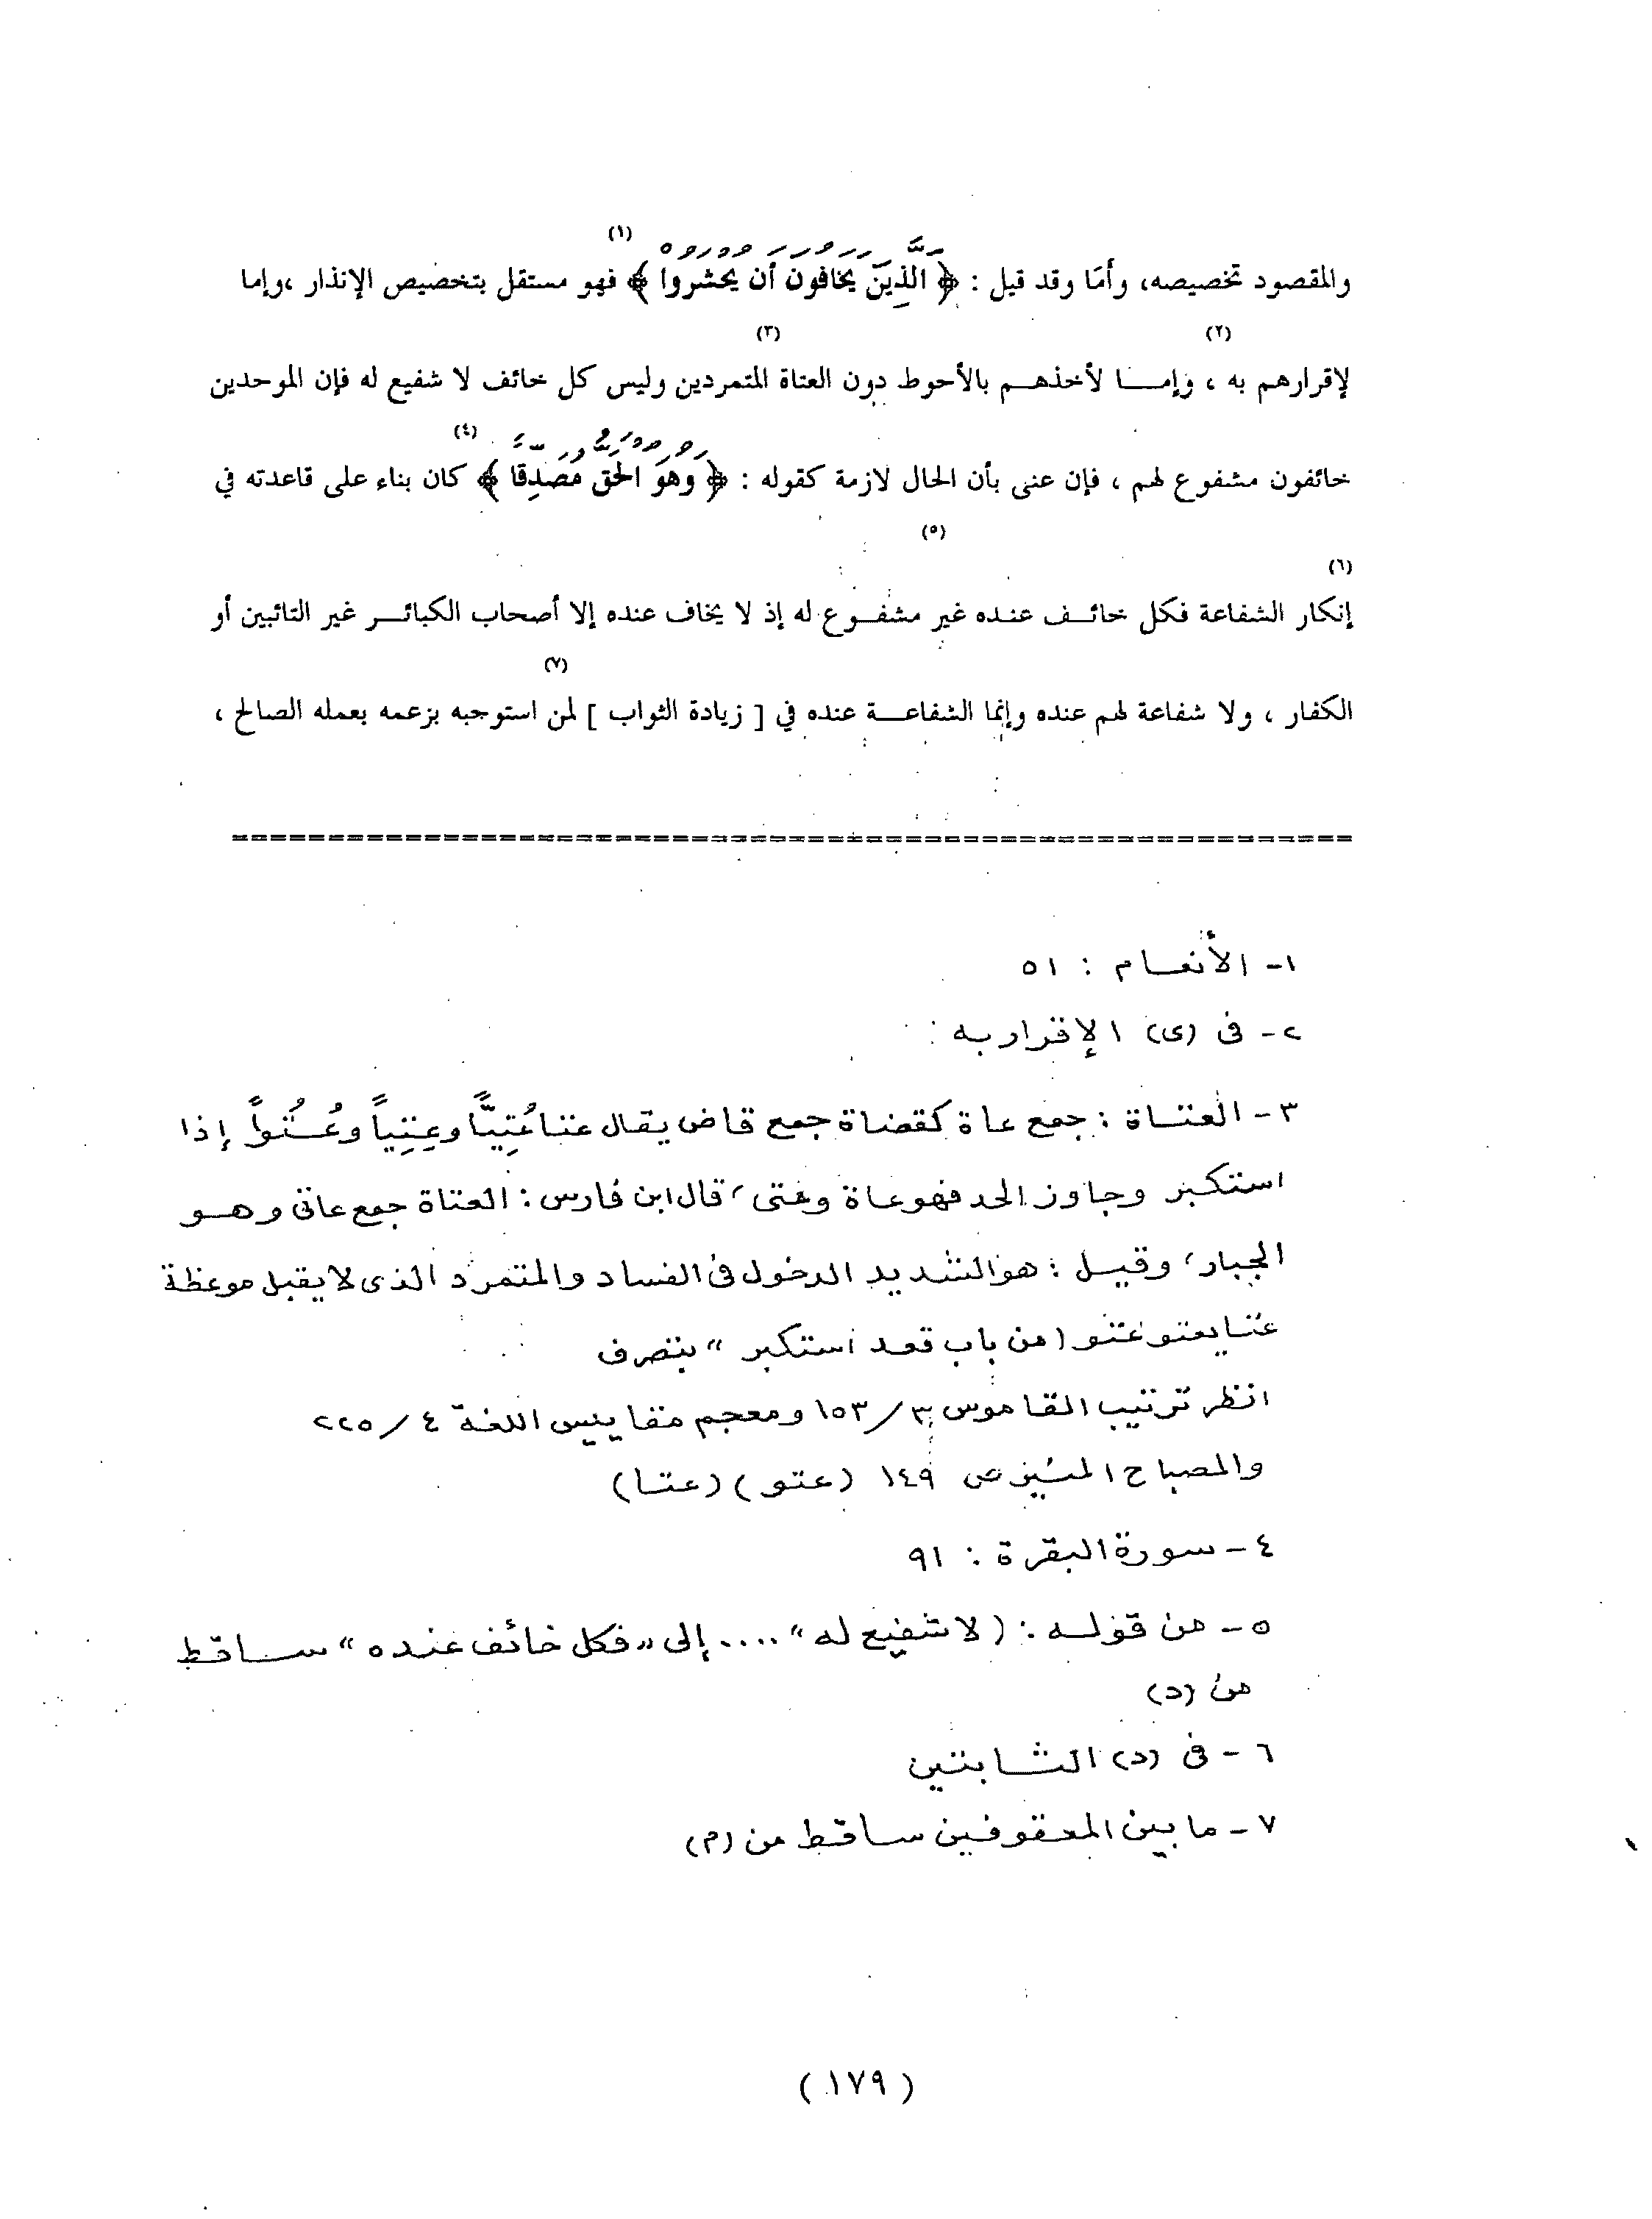 (١)
والمقصود تخصيصه، وأمّا وقد قيل : ﴿ الَّذِينَ يَخَافُونَ أَن يُحْشَرُوا ﴾ فهو مستقل بتخصيص الإنذار ،وإما
(٢) (٣)
لإقرارهم به ، وإمــا لأخذهـم بالأحوط دون العتاة المتمردين وليس كل خائف لا شفيع له فإن الموحدين
(٤)
خائفون مشفوع لهم ، فإن عنى بأن الحال لازمة كقوله : ﴿ وَهُوَ الْحَقُّ مُصَدِّقًا ﴾ كان بناء على قاعدته في
(٥)
(٦)
إنكار الشفاعة فكل خائـف عنده غير مشفـوع له إذ لا يخاف عنده إلا أصحاب الكبائـر غير التائبين أو
(٧)
الكفار ، ولا شفاعة لهم عنده وإنما الشفاعـة عنده في [ زيادة الثواب ] لمن استوجبه بزعمه بعمله الصالح ،
١- الأنعـام : ٥١
٢- فى (ى) الإقرار به
٣- العتـاة : جمع عاة كقضاة جمع قاض يقال عتا عُتِيًّا وعِتِيًّا وعُـتُواً إذا
استكبر وجاوز الحد فهو عاة وعتى، قال ابن فارس : العتاة جمع عاتى وهـو
الجبار، وقيـل : هو الشديد الدخول فى الفساد والمتمرد الذى لا يقبل موعظة
عتا يعتو عتو (من باب قعد استكبر " بتصرف
انظر ترتيب القاموس ٣/١٥٣ ومعجم مقاييس اللغة ٤/٢٢٥
والمصباح المنير ص ١٤٩ (عتو) (عتا)
٤- سورة البقرة : ٩١
٥- من قولـه : (لا شفيع له" .... إلى "فكل خائف عنده" سـاقط
من (د)
٦- فى (د) الثـابتين
٧- ما بين المعقوفين سـاقط من (م)
(١٧٩)